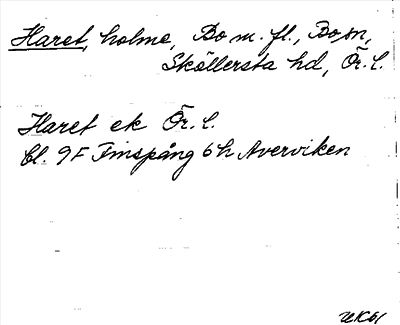 Haret, holme, Bo m. fl., Bo sn,
Sköllersta hd, Ör. l.
Haret ek Ör. l.
Bl. 9F Finspång 6h Averviken